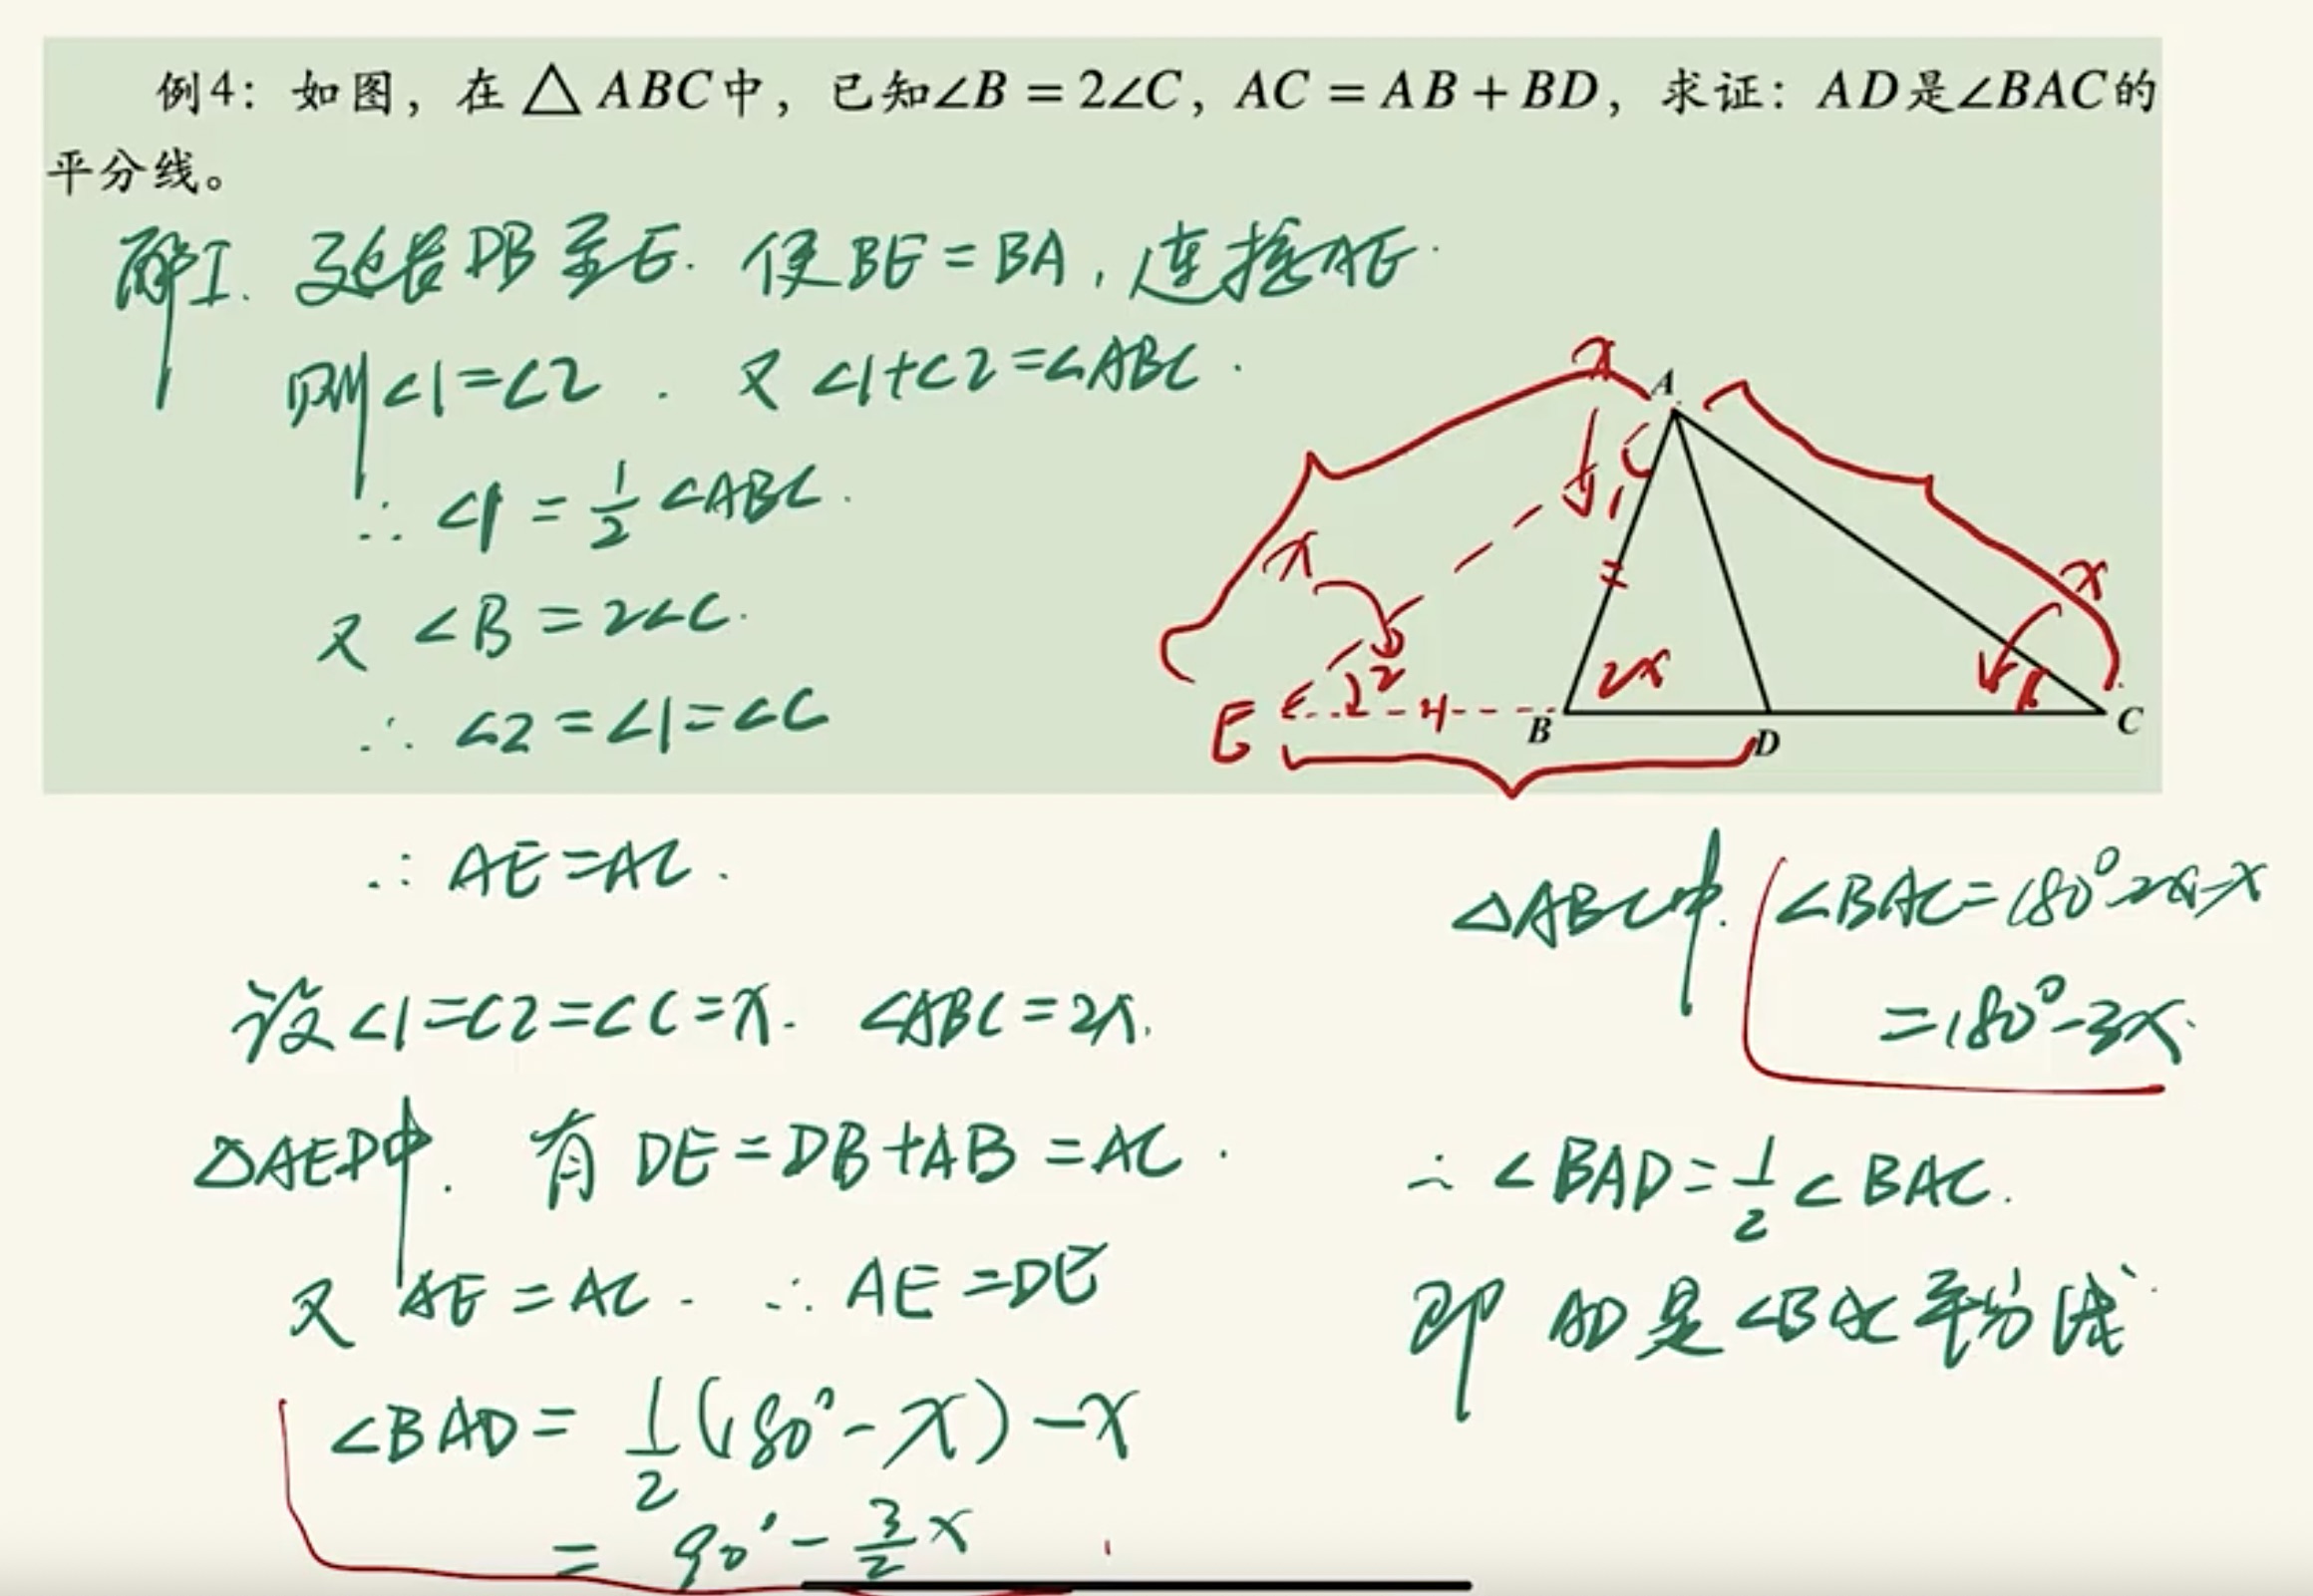 例4：如图，在△ABC中，已知∠B = 2∠C，AC = AB + BD，求证：AD是∠BAC的
平分线。
解I. 延长DB至E. 使BE = BA，连接AE.
则∠1=∠2. 又∠1+∠2=∠ABC.
∴ ∠1 = 1/2 ∠ABC.
又 ∠B = 2∠C.
∴ ∠2 = ∠1 = ∠C
x
A
1
x
x
2
2x
E
B
D
C
∴ AE = AC.
设∠1=∠2=∠C=x. ∠ABC = 2x.
△AED中. 有 DE = DB + AB = AC.
又 AE = AC. ∴ AE = DE
∠BAD = 1/2 (180° - x) - x
= 90° - 3/2 x
△ABC中. ∠BAC = 180° - 2x - x
= 180° - 3x.
∴ ∠BAD = 1/2 ∠BAC.
即 AD 是 ∠BAC 平分线.